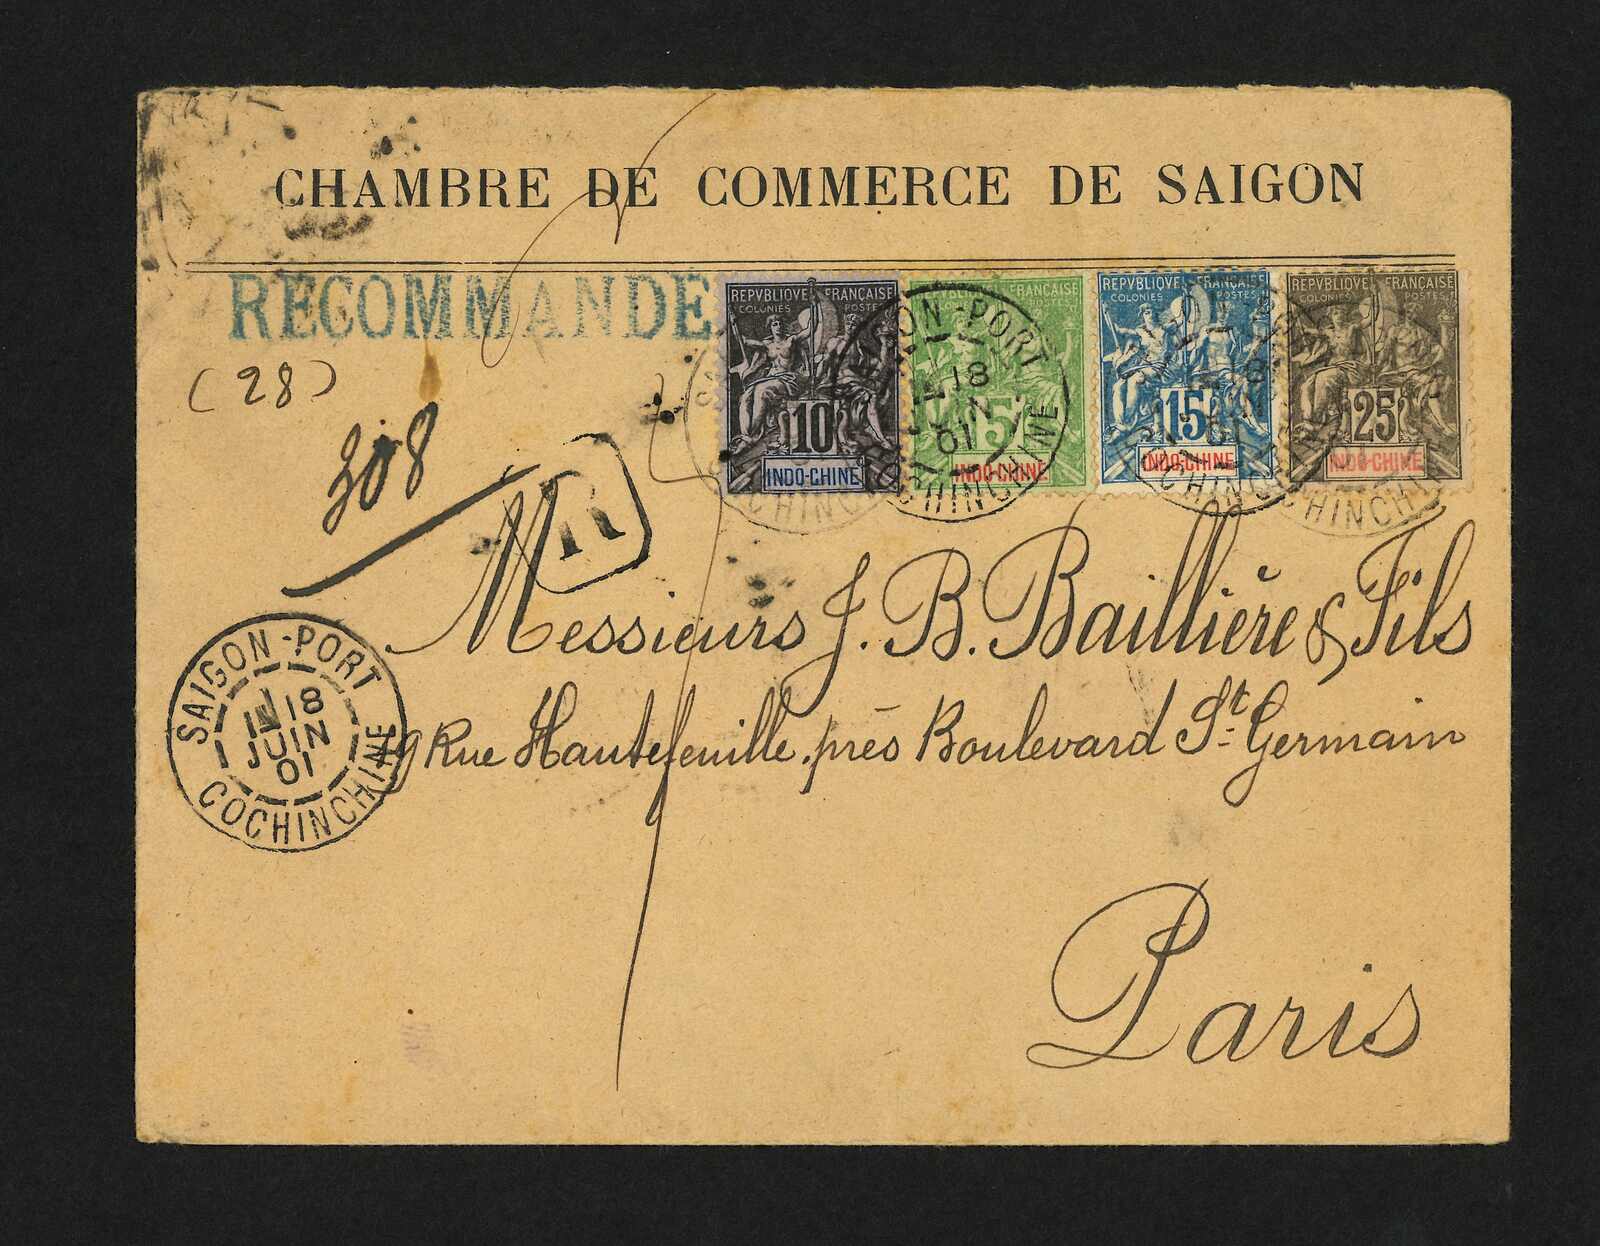 CHAMBRE DE COMMERCE DE SAIGON
RECOMMANDÉ
REPVBLIQVE FRANÇAISE
COLONIES POSTES
10
INDO-CHINE
REPVBLIQVE FRANÇAISE
POSTES
5
INDO-CHINE
REPVBLIQVE FRANÇAISE
COLONIES POSTES
15
INDO-CHINE
REPVBLIQVE FRANÇAISE
COLONIES POSTES
25
INDO-CHINE
SAIGON-PORT
18
JUIN
01
COCHINCHINE
(28)
308
R
Messieurs J. B. Baillière & Fils
19 Rue Hautefeuille, près Boulevard St. Germain
Paris
SAIGON-PORT
18
JUIN
01
COCHINCHINE